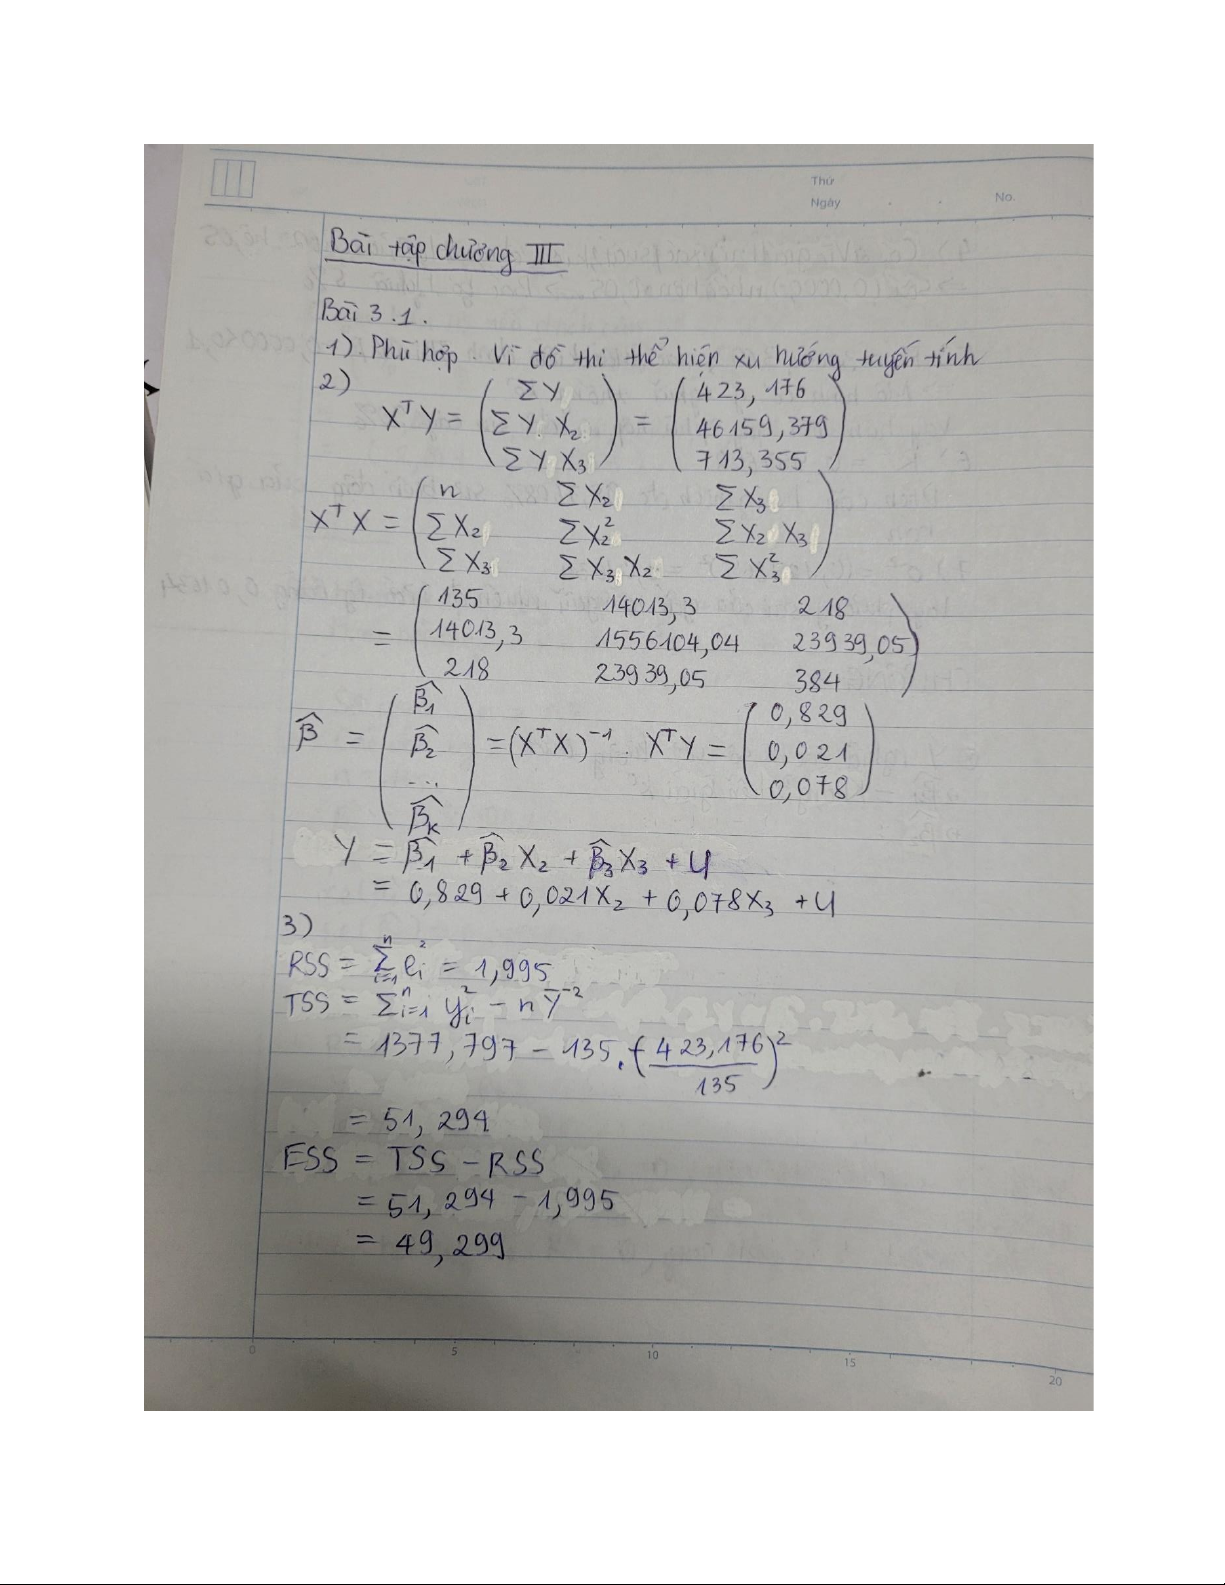 Thứ
Ngày
No.
Bài tập chương III
Bài 3.1.
1) Phù hợp. Vì đồ thị thể hiện xu hướng tuyến tính
2)
XᵀY = ( ΣY ; ΣY X₂ ; ΣY X₃ ) = ( 423,176 ; 46159,379 ; 713,355 )
XᵀX = ( n ΣX₂ ΣX₃ ; ΣX₂ ΣX₂² ΣX₂ X₃ ; ΣX₃ ΣX₃ X₂ ΣX₃² )
= ( 135 14013,3 218 ; 14013,3 1556104,04 23939,05 ; 218 23939,05 384 )
β̂ = ( β̂₁ ; β̂₂ ; ... ; β̂ₖ ) = (XᵀX)⁻¹ . XᵀY = ( 0,829 ; 0,021 ; 0,078 )
Y = β̂₁ + β̂₂ X₂ + β̂₃ X₃ + U
= 0,829 + 0,021X₂ + 0,078X₃ + U
3)
RSS = Σⁿᵢ₌₁ eᵢ² = 1,995
TSS = Σⁿᵢ₌₁ yᵢ² - n Y̅²
= 1377,797 - 135.(423,176/135)²
= 51,294
ESS = TSS - RSS
= 51,294 - 1,995
= 49,299
0 5 10 15 20